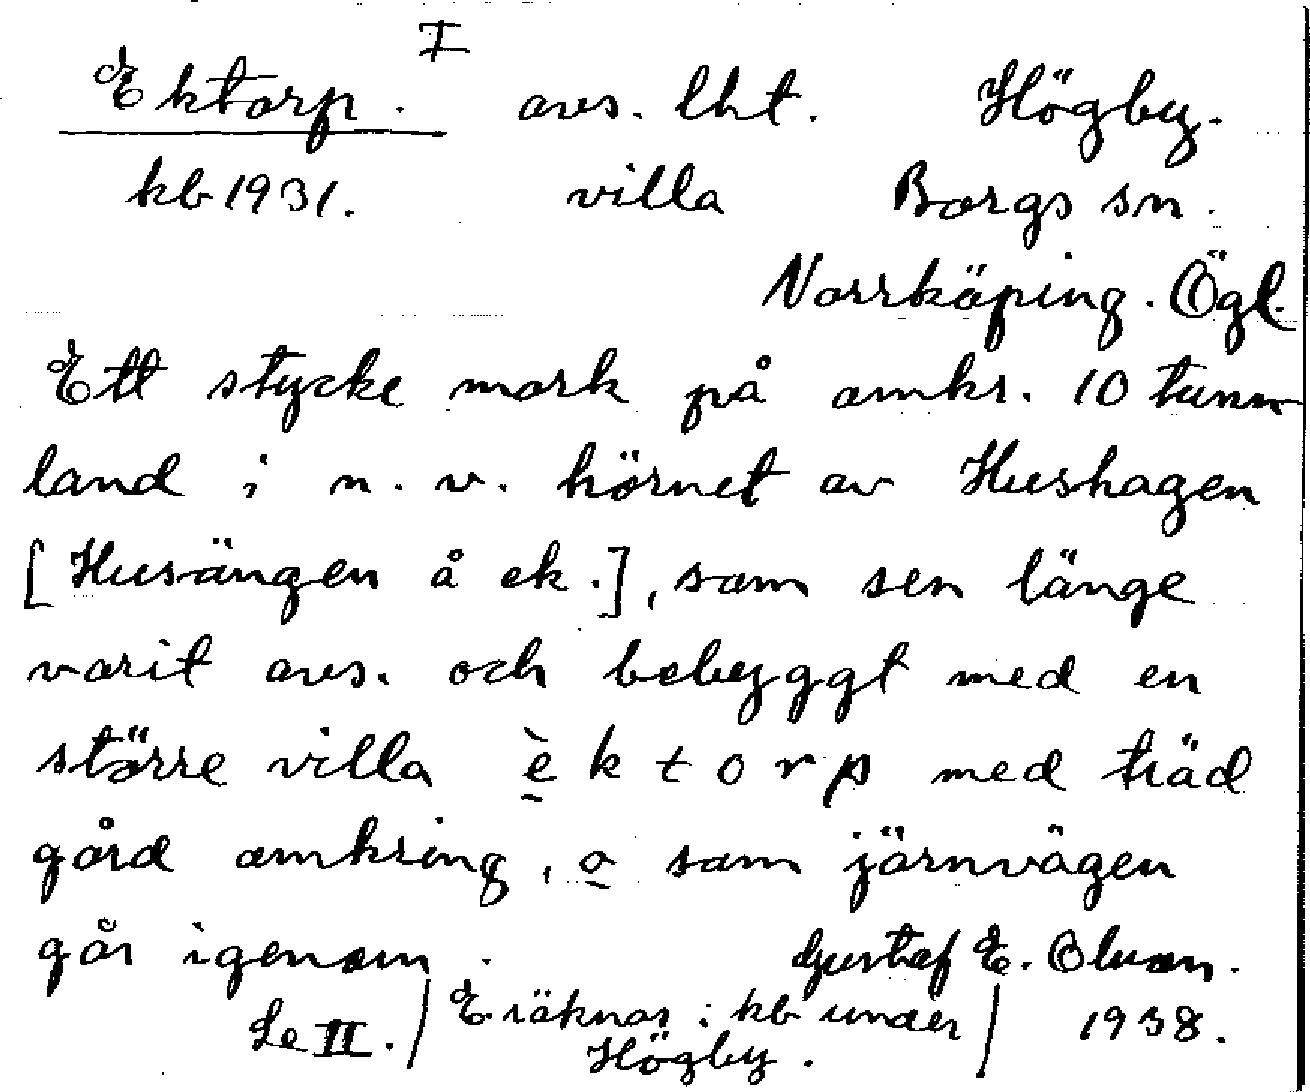 I
Ektorp. avs. lht. Högby.
kb 1931. villa Borgs sn.
Norrköping. Ögl.
Ett stycke mark på omkr. 10 tunn
land i n. v. hörnet av Hushagen
[Husängen å ek.], som sen länge
varit avs. och bebyggt med en
större villa è̱ktorp med träd
gård omkring, o̱ som järnvägen
går igenom.
Gustaf E. Olsson.
Se II. / E räknas i kb under / 1938.
Högby.